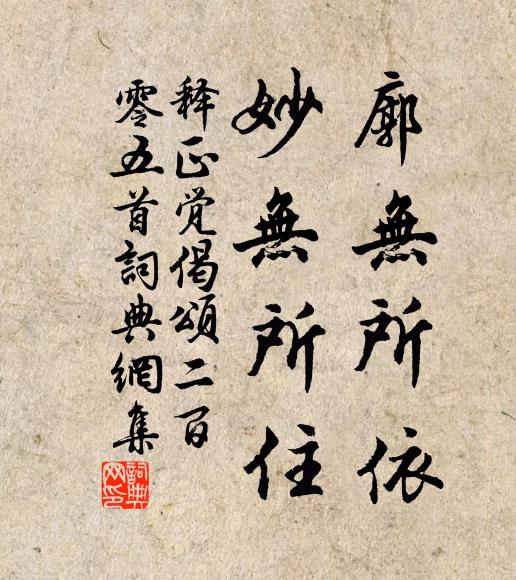 廓無所依
妙無所住
释正觉偈頌二百
零五首詞典網集
詞典
网印